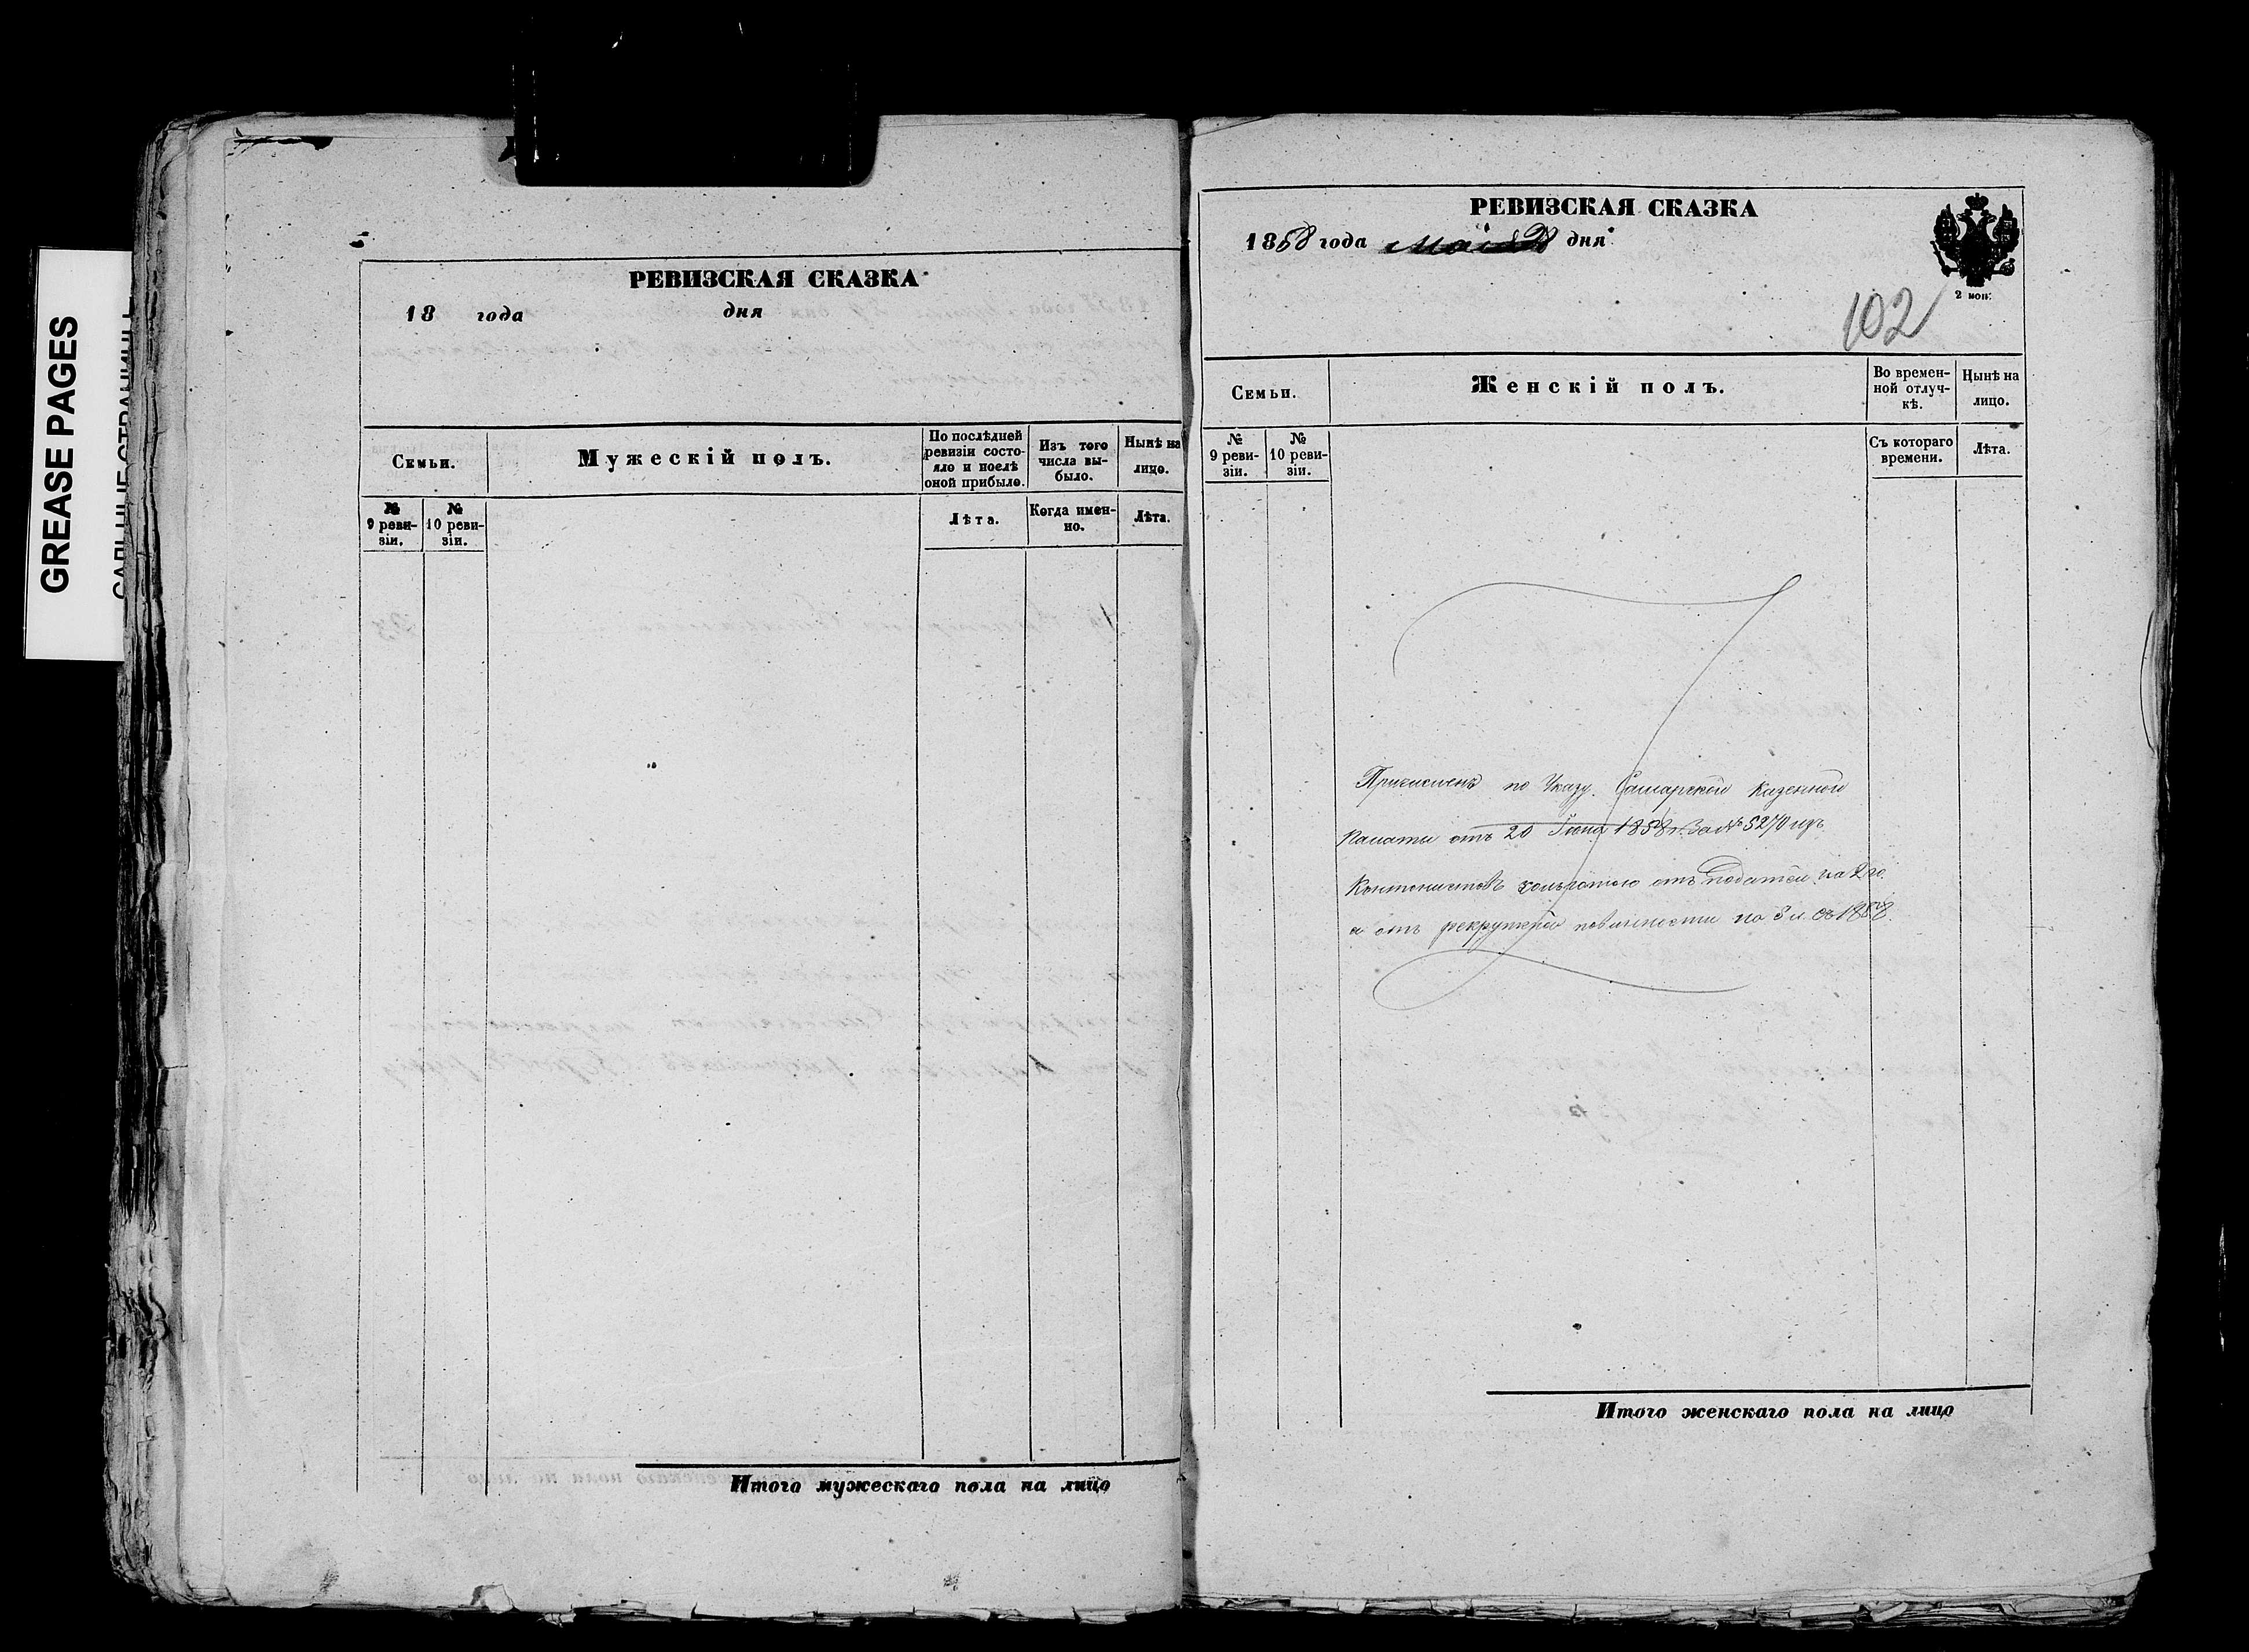 GREASE PAGES
РЕВИЗСКАЯ СКАЗКА
18 года дня
Семьи.
Мужескій полъ.
По послѣдней ревизіи состояло и послѣ оной прибыло.
Изъ того числа выбыло.
Нынѣ на лицо.
№ 9 ревизіи.
№ 10 ревизіи.
Лѣта.
Когда именно.
Лѣта.
Итого мужескаго пола на лицо
РЕВИЗСКАЯ СКАЗКА
1858 года Мая дня
2 коп.
102
Семьи.
Женскій полъ.
Во временной отлучкѣ.
Нынѣ на лицо.
№ 9 ревизіи.
№ 10 ревизіи.
Съ котораго времени.
Лѣта.
Причисленъ по Указу Самарской Казенной
Палаты отъ 20 Іюня 1858 г. за № 5270 изъ
Кантонистовъ съ льготою отъ податей на
а отъ рекрутской повинности на 3 съ 1858.
Итого женскаго пола на лицо